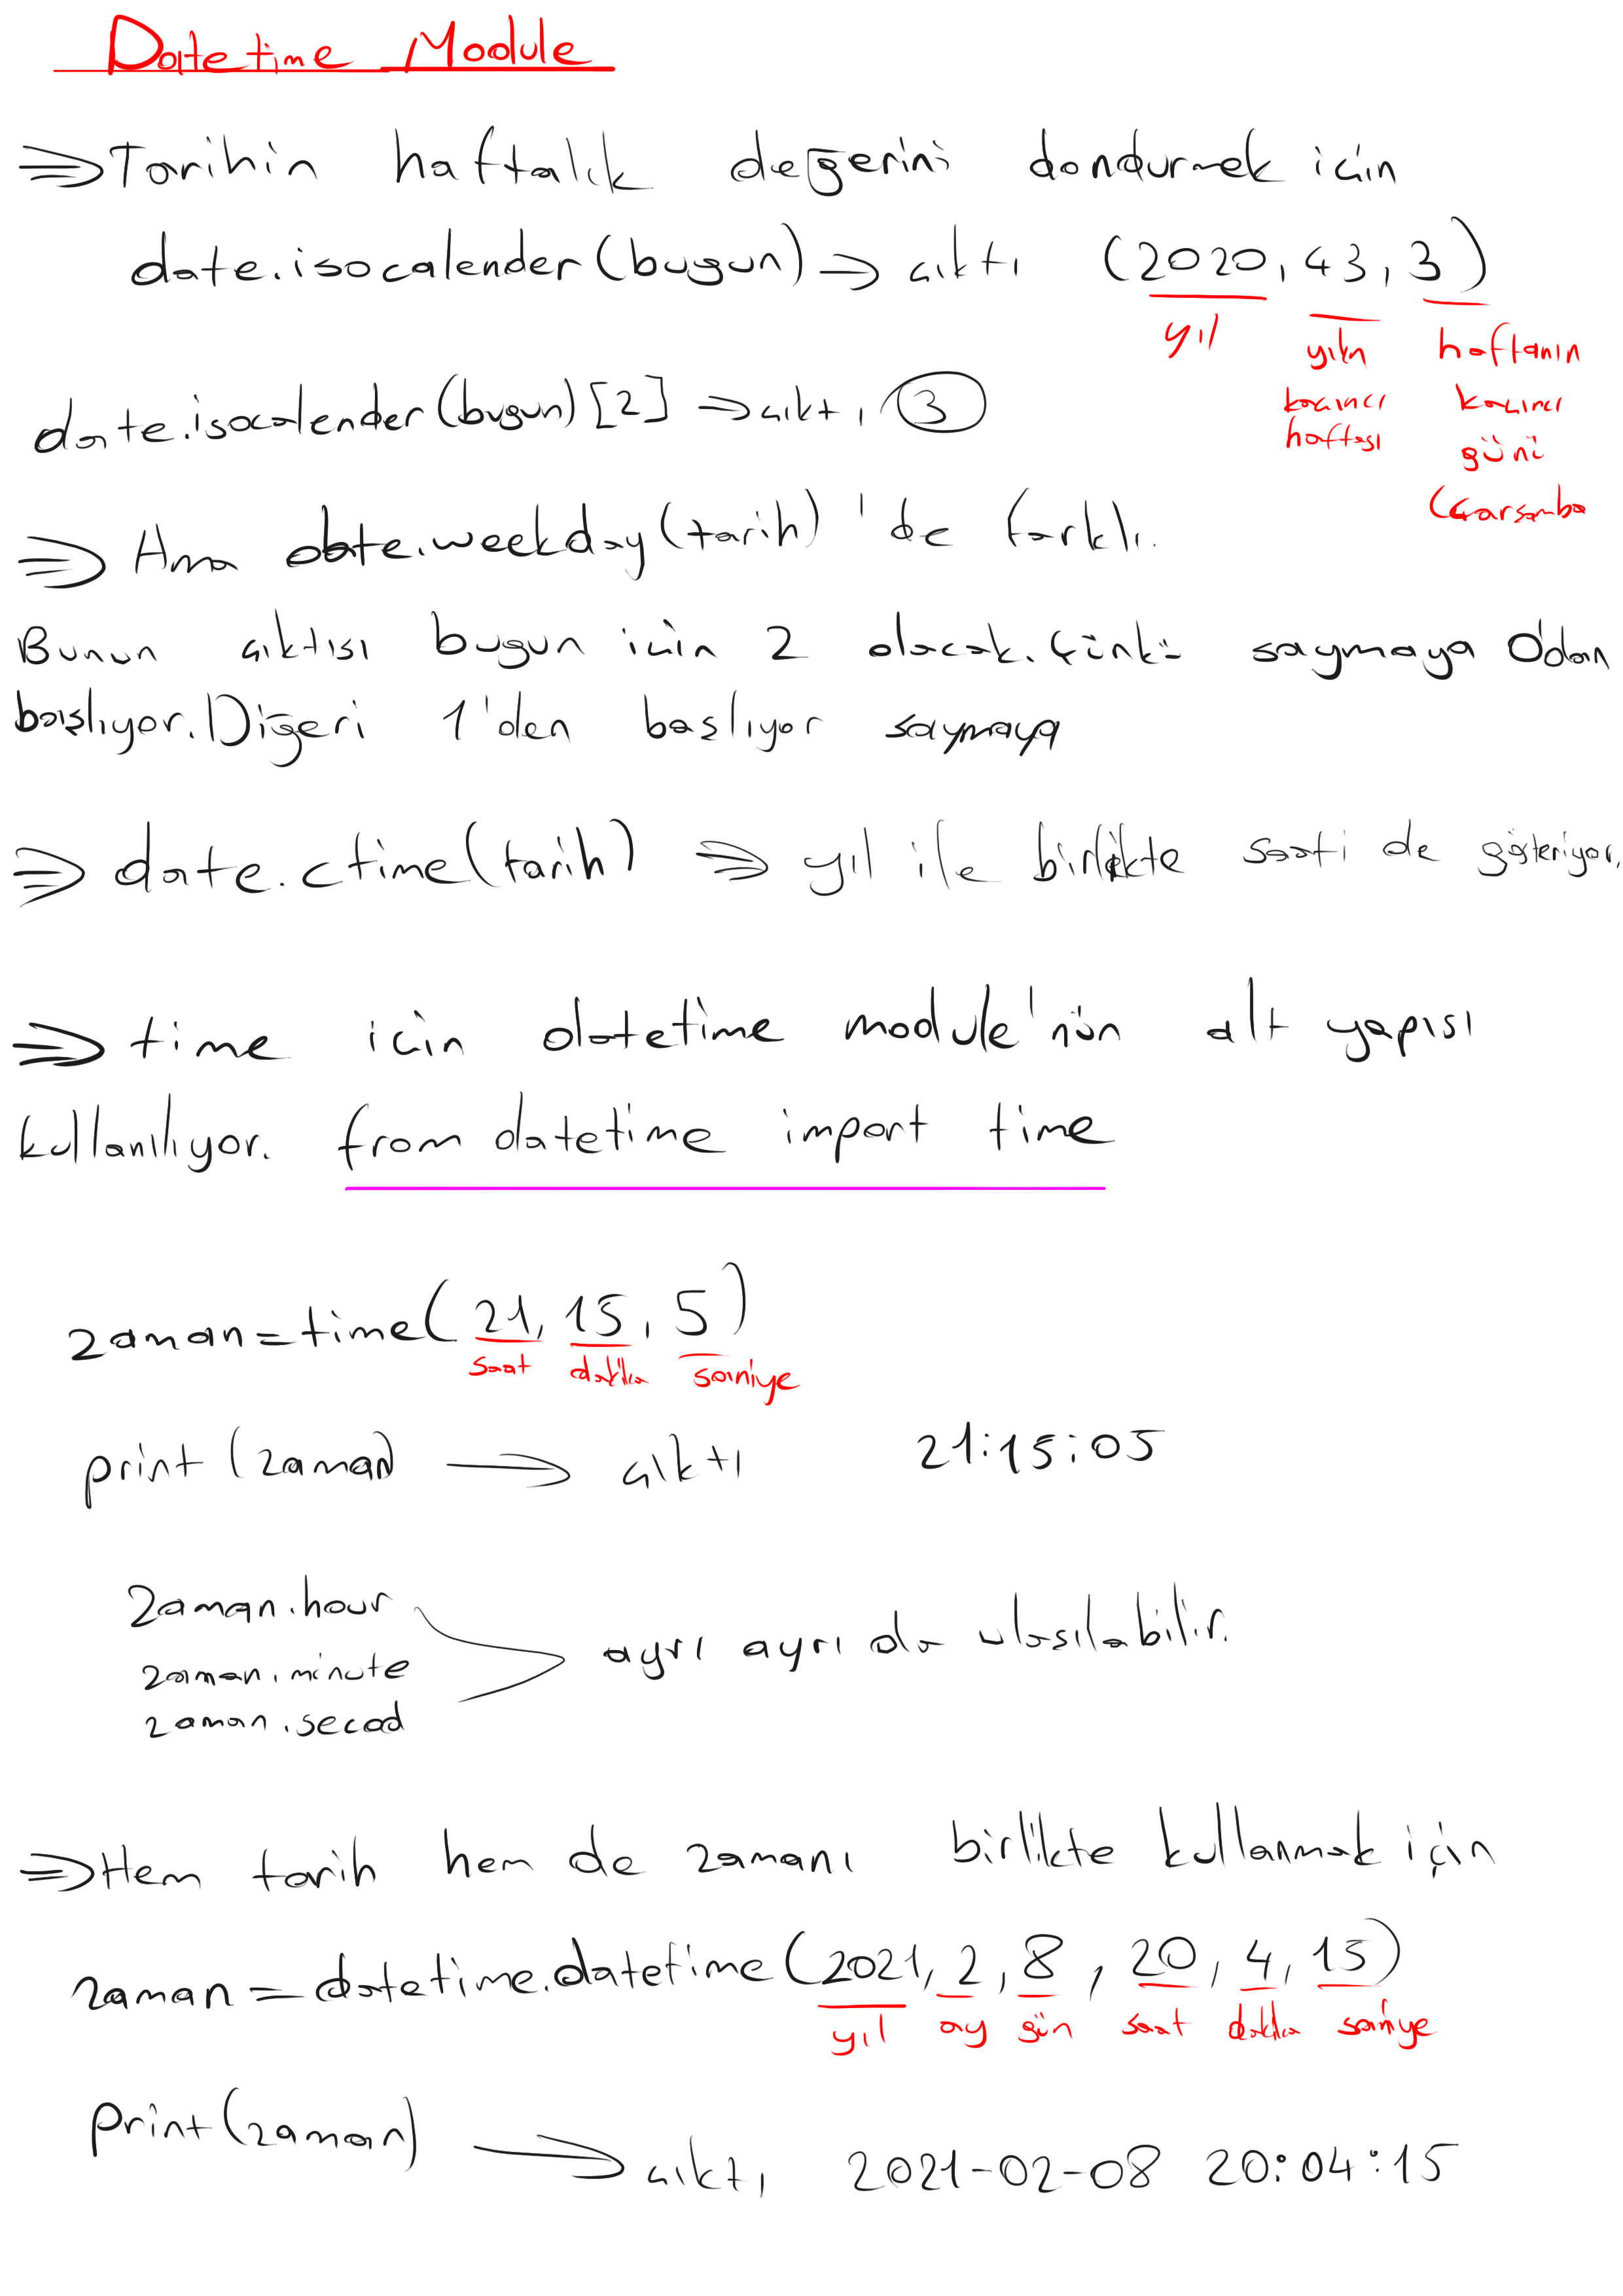 Datetime Module
⇒ Tarihin haftalık değerini dondurmek için
date.isocalender(bugun) ⇒ çıktı (2020, 43, 3)
yıl
yılın
kaçıncı
haftası
haftanın
kaçıncı
günü
(Çarşamba
date.isocalender(bugun)[2] ⇒ çıktı 3
⇒ Ama date.weekday(tarih)'de farklı.
Bunun çıktısı bugun için 2 olacak. Çünkü saymaya 0'dan
başlıyor. Diğeri 1'den başlıyor saymaya
⇒ date.ctime(tarih) ⇒ yıl ile birlikte saati de gösteriyor.
⇒ time için datetime module'nün alt yapısı
kullanılıyor. from datetime import time
zaman=time(21, 15, 5)
saat dakika saniye
print(zaman) → çıktı 21:15:05
zaman.hour
zaman.minute
zaman.secod
ayrı ayrı da ulaşılabilir.
⇒ Hem tarih hem de zamanı birlikte kullanmak için
zaman = datetime.datetime(2021, 2, 8, 20, 4, 15)
yıl ay gün saat dakika saniye
print(zaman) → çıktı 2021-02-08 20:04:15